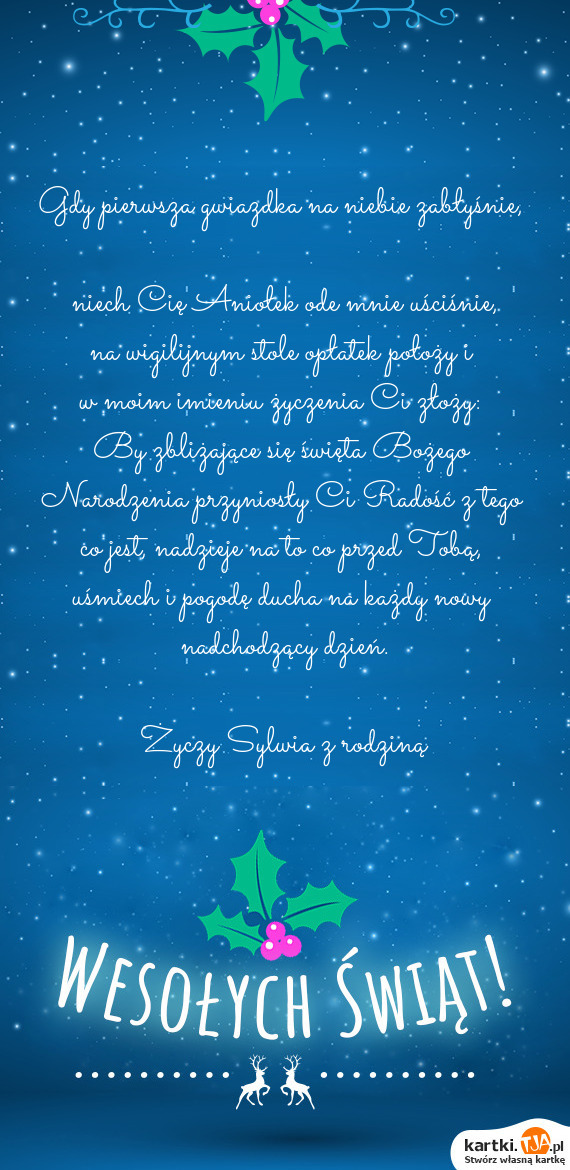 Gdy pierwsza gwiazdka na niebie zabłyśnie,
niech Cię Aniołek ode mnie uściśnie,
na wigilijnym stole opłatek położy i
w moim imieniu życzenia Ci złoży:
By zbliżające się święta Bożego
Narodzenia przyniosły Ci Radość z tego
co jest, nadzieje na to co przed Tobą,
uśmiech i pogodę ducha na każdy nowy
nadchodzący dzień.
Życzy Sylwia z rodziną
Wesołych Świąt!
kartki.TJA.pl
Stwórz własną kartkę